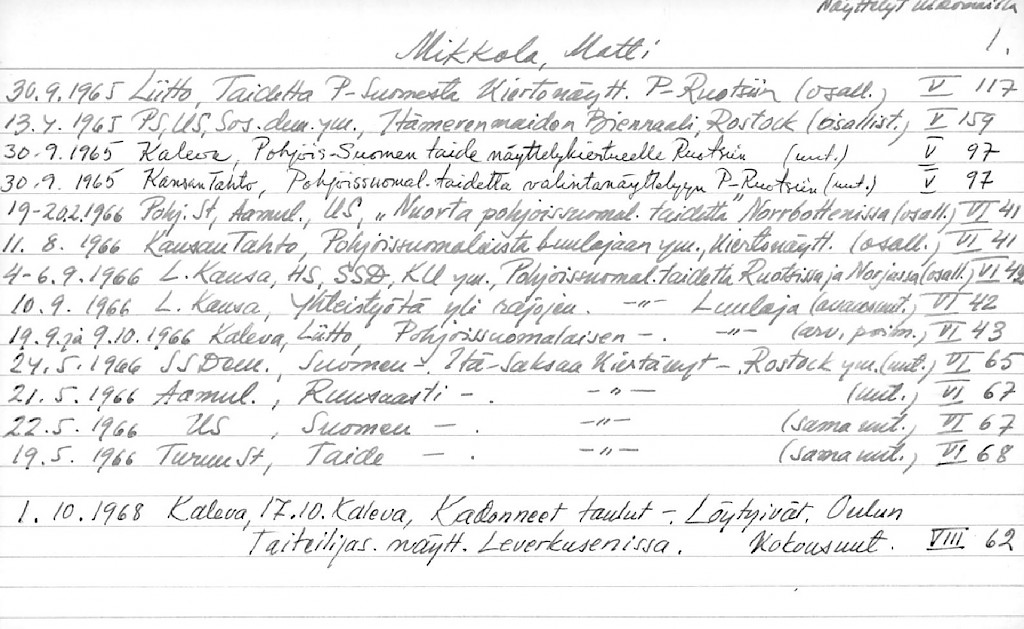 Näyttelyt ulkomailla
1.
Mikkola, Matti
30.9.1965 Liitto, Taidetta P-Suomesta Kiertonäytt. P-Ruotsiin (osall.) V 117
13.7.1965 PS, US, Sos.dem. ym., Itämerenmaiden Biennaali, Rostock (osallist.) V 159
30.9.1965 Kaleva, Pohjois-Suomen taide näyttelykiertueelle Ruotsiin (uut.) V 97
30.9.1965 Kansan Tahto, Pohjoissuomal. taidetta valintanäyttelyyn P-Ruotsiin (uut.) V 97
19-20.2.1966 Pohj. St, Aamul., US, "Nuorta pohjoissuomal. taidetta" Norrbottenissa (osall.) VI 41
11.8.1966 Kansan Tahto, Pohjoissuomalaista Luulajaan ym., Kiertonäytt. (osall.) VI 41
4-6.9.1966 L. Kansa, HS, SSD, KU ym., Pohjoissuomal. taidetta Ruotsissa ja Norjassa (osall.) VI
10.9.1966 L. Kansa, Yhteistyötä yli rajojen. -"- Luulaja (avausuut.) VI 42
19.9. ja 9.10.1966 Kaleva, Liitto, Pohjoissuomalaisen -. -"- (arv. poim.) VI 43
24.5.1966 SSDem., Suomen -. Itä-Saksaa Kiertänyt -. Rostock ym. (uut.) VI 65
21.5.1966 Aamul., Runsaasti -. -"- (uut.) VI 67
22.5.1966 US, Suomen -. -"- (sama uut.) VI 67
19.5.1966 Turun St, Taide -. -"- (sama uut.) VI 68
1.10.1968 Kaleva, 17.10. Kaleva, Kadonneet taulut -. Löytyivät. Oulun
Taiteilijas. näytt. Leverkusenissa. Kokousuut. VIII 62